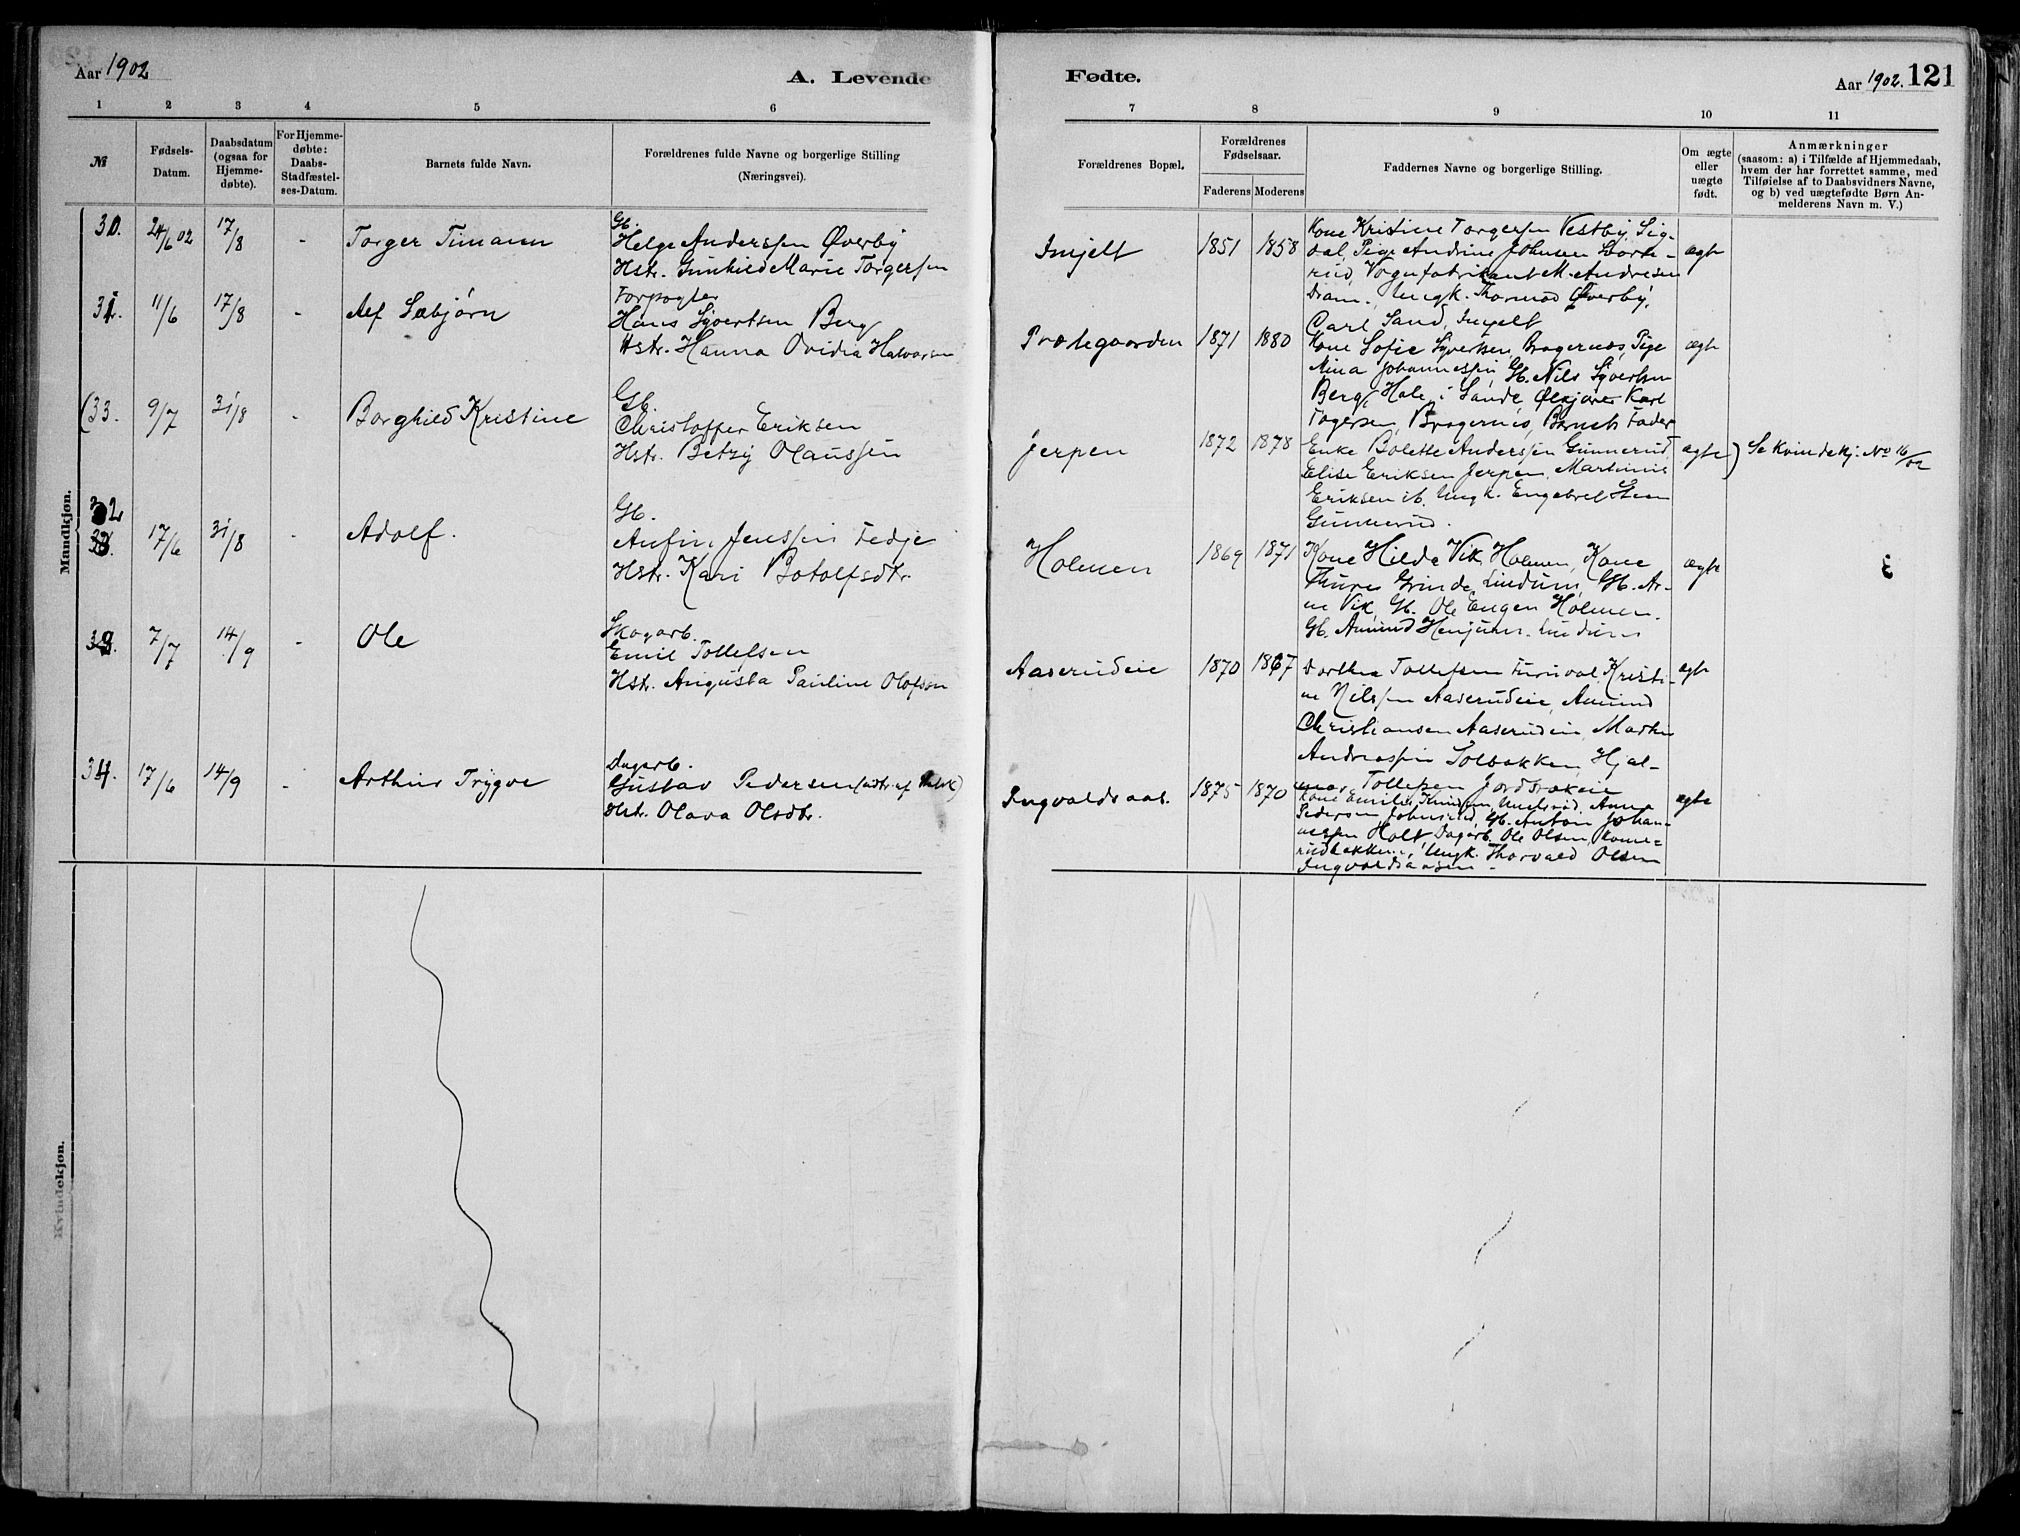 Aar 1902
A. Levende
Fødte.
Aar 1902. 121
1 2 3 4 5 6 7 8 9 10 11
№
Fødsels-Datum.
Daabsdatum (ogsaa for Hjemmedøbte).
For Hjemmedøbte: Daabs-Stadfæstelses-Datum.
Barnets fulde Navn.
Forældrenes fulde Navne og borgerlige Stilling
(Næringsvei).
Forældrenes Bopæl.
Forældrenes Fødselsaar.
Faderens Moderens
Faddernes Navne og borgerlige Stilling.
Om ægte eller uægte født.
Anmærkninger
(saasom: a) i Tilfælde af Hjemmedaab,
hvem der har forrettet samme, med
Tilføielse af to Daabsvidners Navne,
og b) ved uægtefødte Børn An-
melderens Navn m. V.)
Mandkjøn.
30. 24/6 02 17/8 - Torger Timann
Gb.
Helge Anderssen Øverby
Hstr. Gunhild Marie Torgersen
Imjelt 1851 1858
Kone Kristine Torgersen Vestby, Sig-
dal, Pige Andrine Johnsen
Vognfabrikant M. Andresen
Dram., Ungk. Thormod Øverby,
Carl Sand, Imjelt
ægte
31. 11/6 17/8 - Alf Sæbjørn
Forpagter
Hans Syvertsen Berg
Hstr. Hanna Ovidia Halvorsen
Præstegaarden 1871 1880
Kone Sofie Syvertsen, Bragernæs, Pige
Mina Johannessen, Gb. Nils Syvertsen
Berg, Hole i Sande, Karl
Togersen, Bragernæs, Barnets Fader
ægte
(33. 9/7 31/8 - Borghild Kristine
Gb.
Christoffer Eriksen
Hstr. Betzy Olaussen
Jerpen 1872 1878
Enke Bolette Anderssen Gunnerud,
Elise Eriksen Jerpen, Martinus
Eriksen ib. Ungk. Engebret Steen
Gunnerud.
ægte) Se Kvindekj: No 16/02
32 17/6 31/8 - Adolf.
Gb.
Anfin Jenssen Fedje
Hstr. Kari Botolfsdtr.
Holmen 1869 1871
Kone Hilda Vik, Holmen, Kone
Thure Grinde, Lindum, Gb. Ar-
ne Vik, Gb. Ole Engen Holmen.
Gb. Amund Henjum. Lindum
ægte
33. 7/7 14/9 - Ole
Skogarb.
Emil Tollefsen
Hstr. Augusta Pauline Olofson
Aaserudeie 1870 1867
Dorthea Tollefsen Kristi-
ne Nilssen Aaserudeie, Amund
Christiansen Aaserudeie, Martin
Andreassen Solbakken, Hjal-
mar Tollefsen
ægte
34. 17/6 14/9 - Arthur Trygve
Dagarb.
Gustav Pedersen
Hstr. Olava Olsdtr.
Ingvaldsaas. 1875 1870
Kone Emilie Knudsen, Anna
Pedersen Gb. Anton Johan-
nessen Holt, Dagarb. Ole Olsen,
Ungk. Thorvald Olsen
Ingvaldsaasen.
ægte
Kvindekjøn.